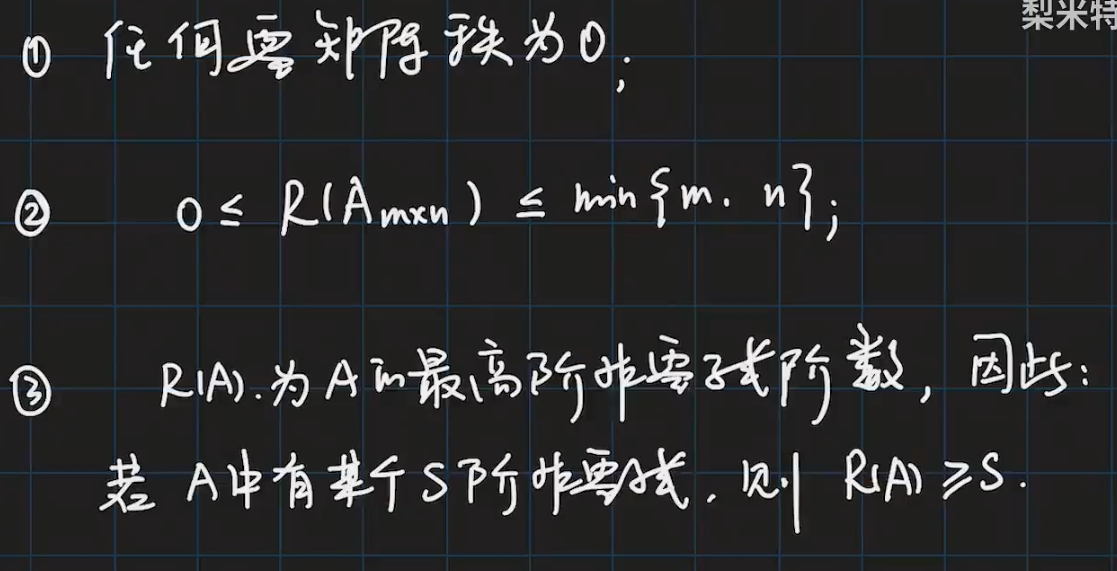 梨米特
① 任何零矩阵秩为0;
② 0 ≤ R(Am×n) ≤ min{m. n};
③ R(A).为A的最高阶非零子式阶数, 因此:
若 A中有某个S阶非零子式, 则 R(A) ≥ S.